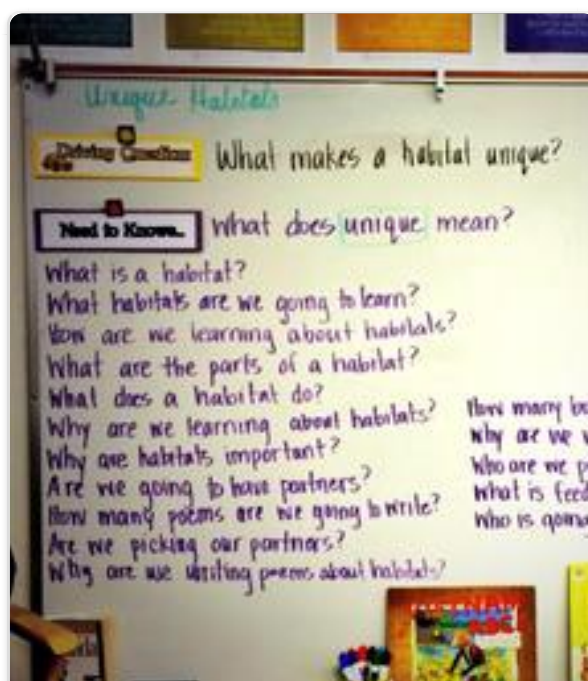 Unique Habitats
Driving Question
What makes a habitat unique?
Need to Knows..
What does unique mean?
What is a habitat?
What habitats are we going to learn?
How are we learning about habitats?
What are the parts of a habitat?
What does a habitat do?
Why are we learning about habitats?
Why are habitats important?
Are we going to have partners?
How many poems are we going to write?
Are we picking our partners?
Why are we writing poems about habitats?
How many
Why are we
Who are we
What is
Who is going
ABC